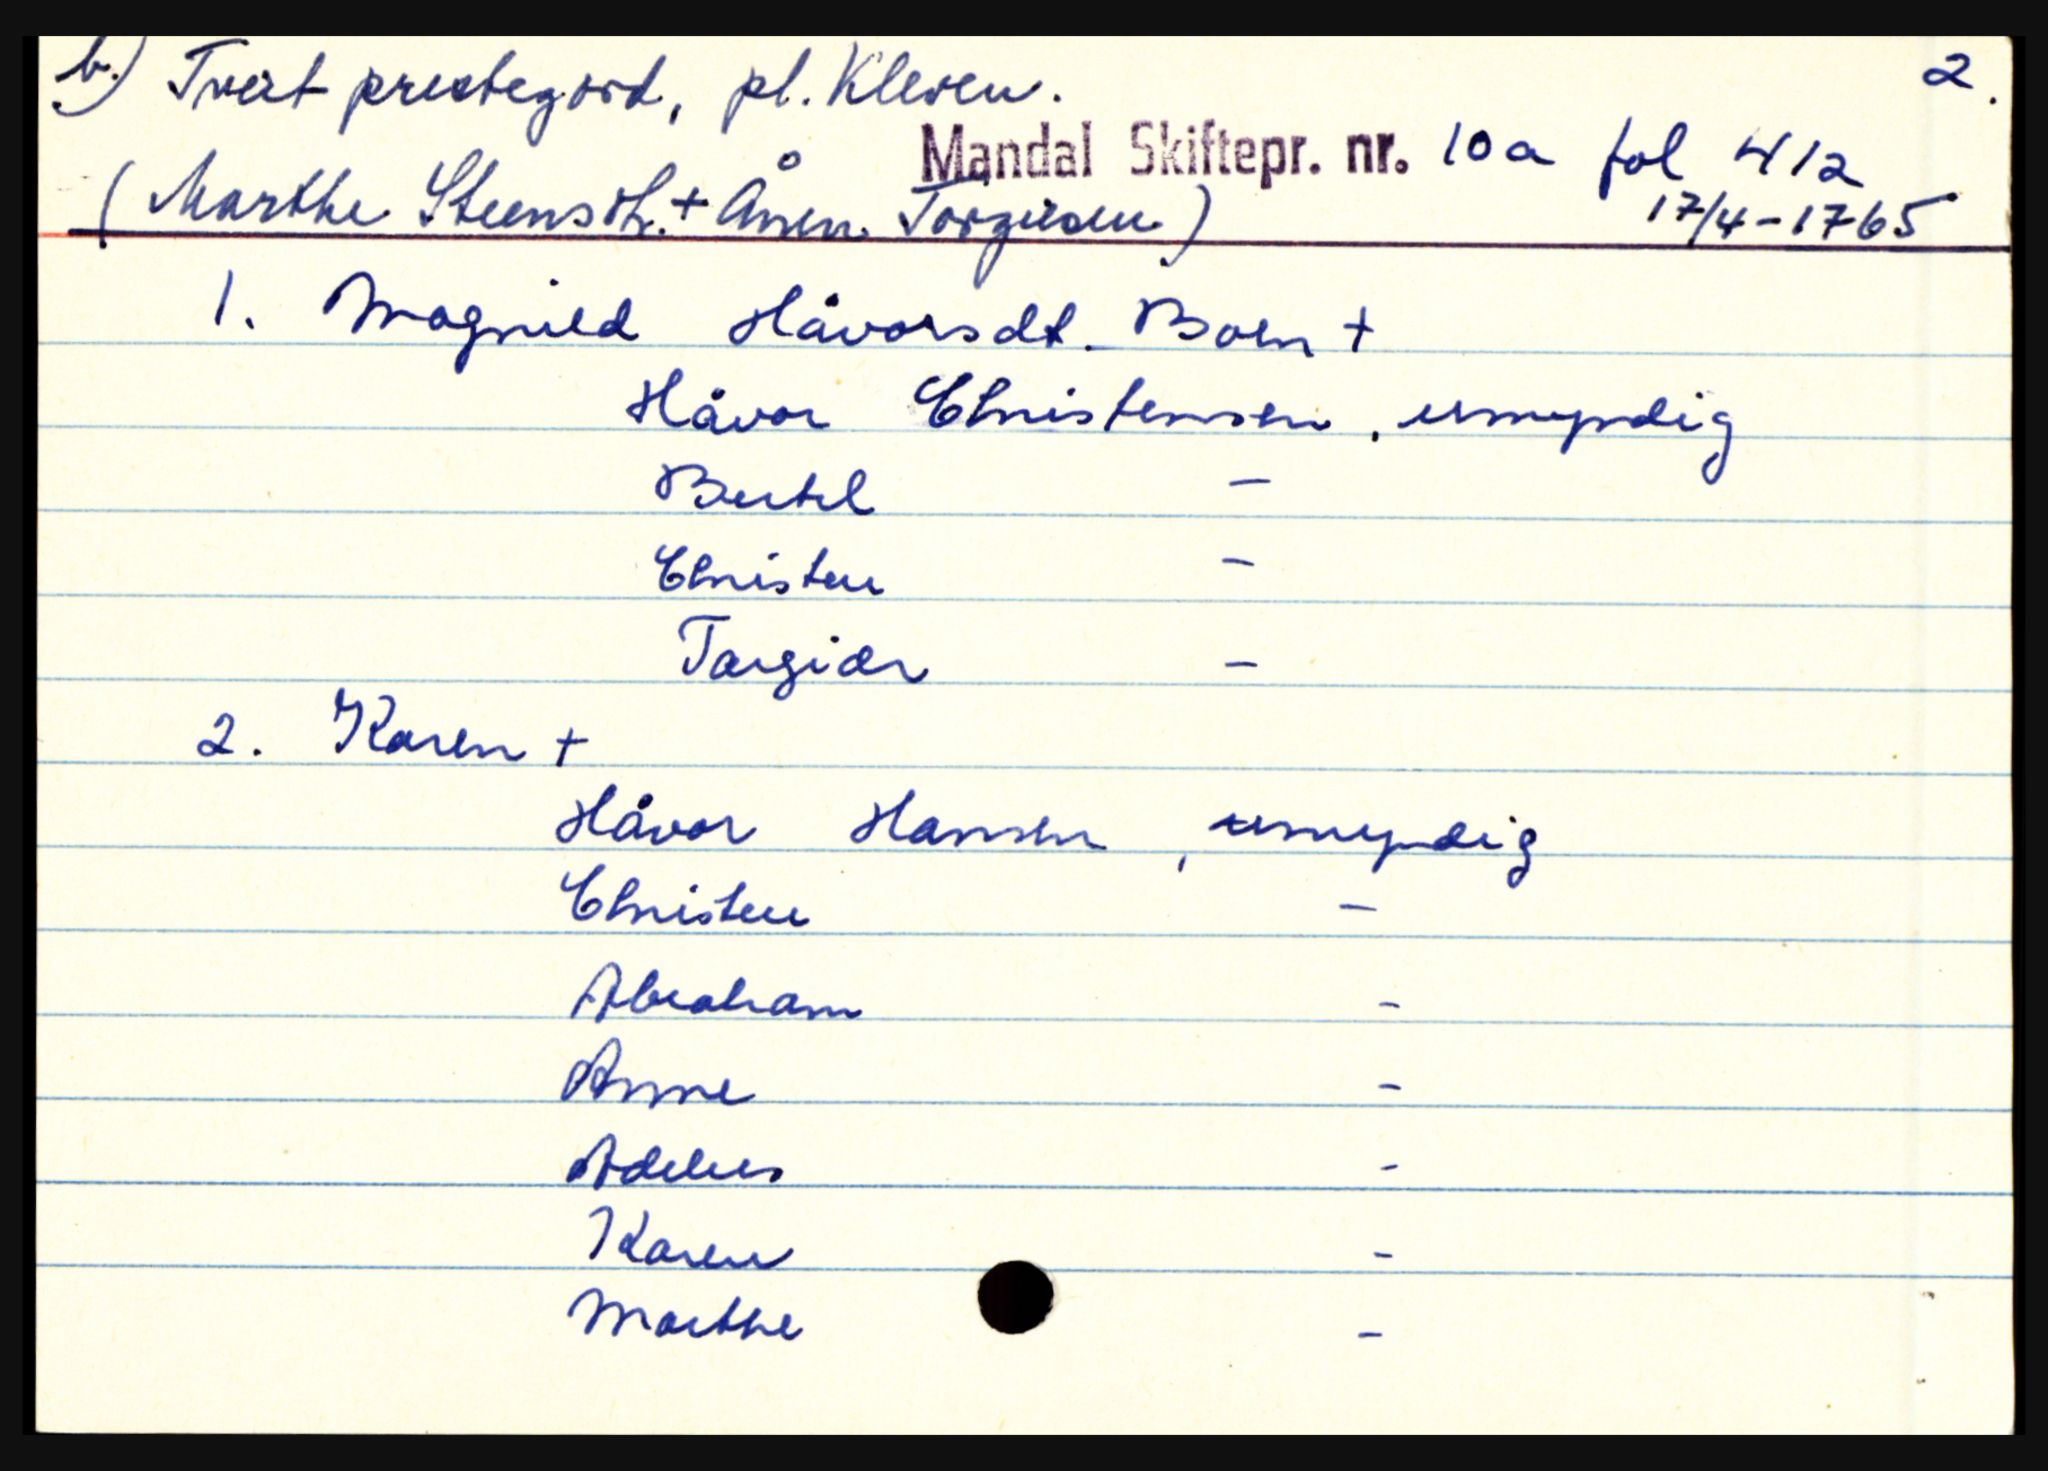 b.) Tveit prestegård, pl. Kleven. 2.
Mandal Skiftepr. nr. 10a fol 412
(Marthe Steensdt. + Ånen Torgiersen) 17/4-1765
1. Magnild Håvorsdt. Boen +
Håvor Christensen, umyndig
Bertel -
Christen -
Targier -
2. Karen +
Håvor Hansen, umyndig
Christen -
Abraham -
Anne -
Adelus -
Karen -
Marthe -